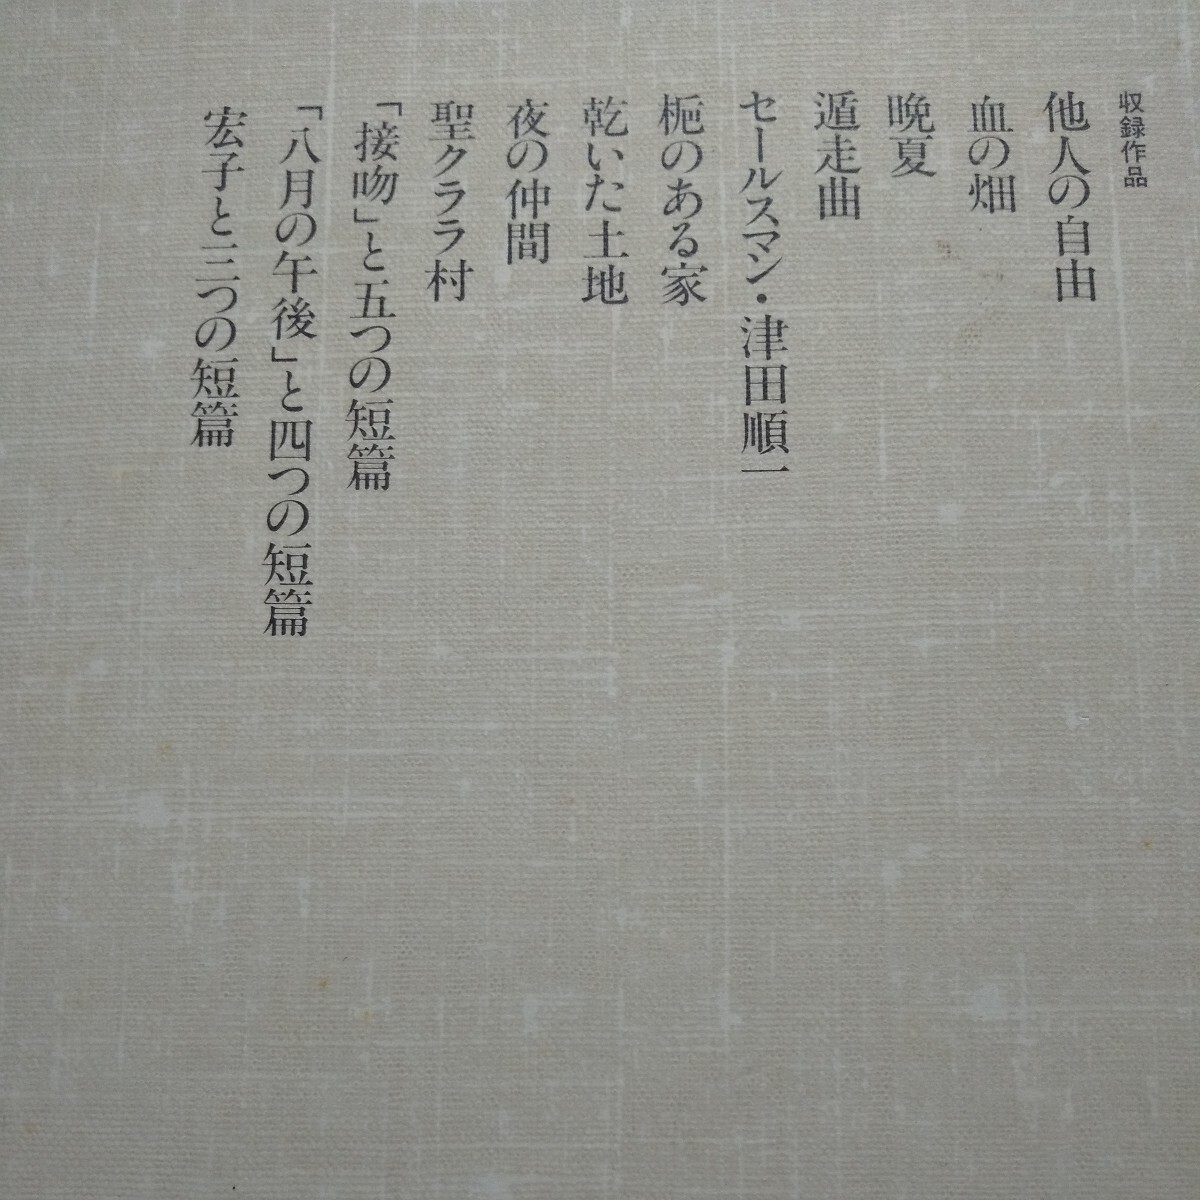 収録作品
他人の自由
血の畑
晩夏
遁走曲
セールスマン・津田順一
梔のある家
乾いた土地
夜の仲間
聖クララ村
「接吻」と五つの短篇
「八月の午後」と四つの短篇
宏子と三つの短篇